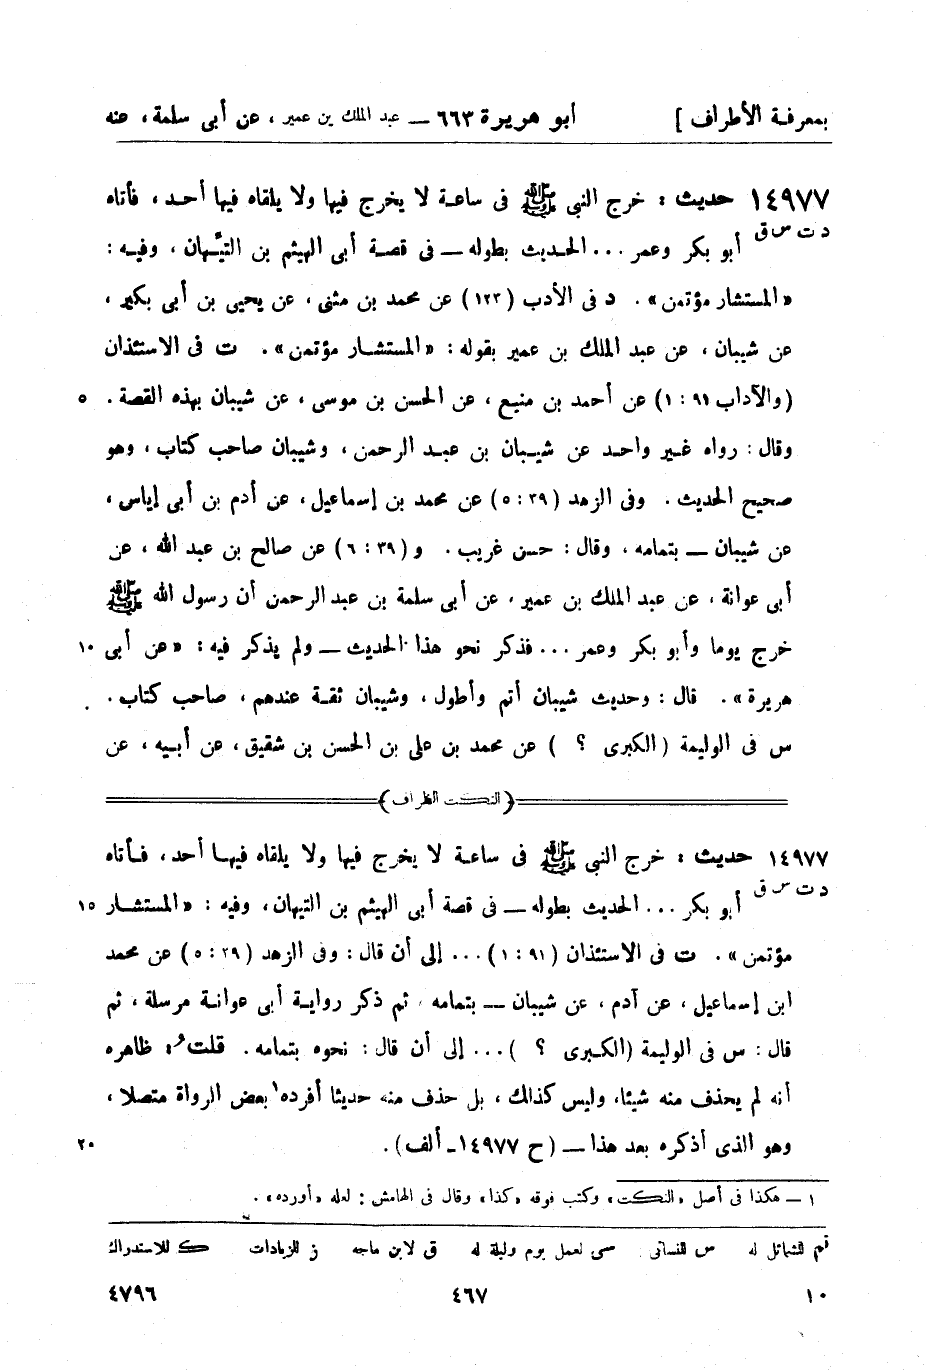 بمعرفة الأطراف ] أبو هريرة ٦٦٣ — عبد الملك بن عمير ، عن أبى سلمة ، عنه
١٤٩٧٧ حديث : خرج النبى ﷺ فى ساعة لا يخرج فيها ولا يلقاه فيها أحد ، فأتاه
د ت س ق أبو بكر وعمر ... الحديث بطوله — فى قصة أبى الهيثم بن التيّهان ، وفيه :
«المستشار مؤتمن» . د فى الأدب (١٢٣) عن محمد بن مثنى ، عن يحيى بن أبى بكير ،
عن شيبان ، عن عبد الملك بن عمير بقوله : «المستشار مؤتمن» . ت فى الاستئذان
(والآداب ٩١ : ١) عن أحمد بن منيع ، عن الحسن بن موسى ، عن شيبان بهذه القصة . ٥
وقال : رواه غير واحد عن شيبان بن عبد الرحمن ، وشيبان صاحب كتاب ، وهو
صحيح الحديث . وفى الزهد (٣٩ : ٥) عن محمد بن إسماعيل ، عن آدم بن أبى إياس ،
عن شيبان — بتمامه ، وقال : حسن غريب . و (٣٩ : ٦) عن صالح بن عبد الله ، عن
أبى عوانة ، عن عبد الملك بن عمير ، عن أبى سلمة بن عبد الرحمن أن رسول الله ﷺ
خرج يوما وأبو بكر وعمر ... فذكر نحو هذا الحديث — ولم يذكر فيه : «عن أبى ١٠
هريرة» . قال : وحديث شيبان أتم وأطول ، وشيبان ثقة عندهم ، صاحب كتاب .
س فى الوليمة (الكبرى ؟ ) عن محمد بن على بن الحسن بن شقيق ، عن أبيه ، عن
(النكت الظراف)
١٤٩٧٧ حديث : خرج النبى ﷺ فى ساعة لا يخرج فيها ولا يلقاه فيها أحد ، فأتاه
د ت س ق أبو بكر ... الحديث بطوله — فى قصة أبى الهيثم بن التيهان ، وفيه : «المستشار ١٥
مؤتمن» . ت فى الاستئذان (٩١ : ١) ... إلى أن قال : وفى الزهد (٣٩ : ٥) عن محمد
ابن إسماعيل ، عن آدم ، عن شيبان — بتمامه . ثم ذكر رواية أبى عوانة مرسلة ، ثم
قال : س فى الوليمة (الكبرى ؟ ) ... إلى أن قال : نحوه بتمامه . قلتُ : ظاهره
أنه لم يحذف منه شيئا ، وليس كذلك ، بل حذف منه حديثا أفرده ١ بعض الرواة متصلا ،
وهو الذى أذكره بعد هذا — (ح ١٤٩٧٧ - ألف) . ٢٠
١ — هكذا فى أصل «النكت» وكتب فوقه «كذا» وقال فى الهامش : لعله «أورده» .
تم للشمائل له س للنسائى سى لعمل يوم وليلة له ق لابن ماجه ز للزيادات ك للاستدراك
١٠ ٤٦٧ ٤٧٩٦